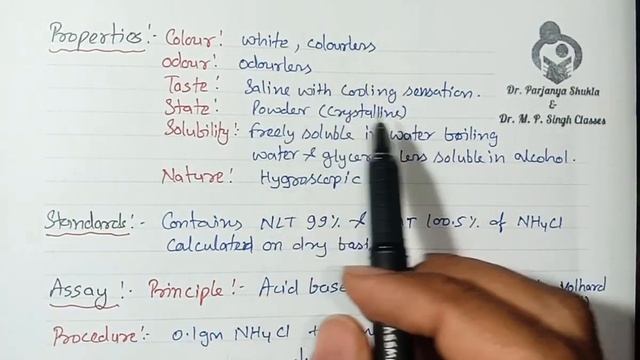 Properties:- Colour: white, colourless
Odour: odourless
Taste: Saline with Cooling sensation.
State: Powder (Crystalline)
Solubility: freely soluble in water boiling
water & less soluble in alcohol.
Nature: Hygroscopic
Standards:- Contains NLT 99% & 100.5% of NH4Cl
Calculated on dry
Assay:- Principle:- Acid base Volhard
Procedure:- 0.1gm NH4Cl +
Dr. Parjanya Shukla
&
Dr. M. P. Singh Classes